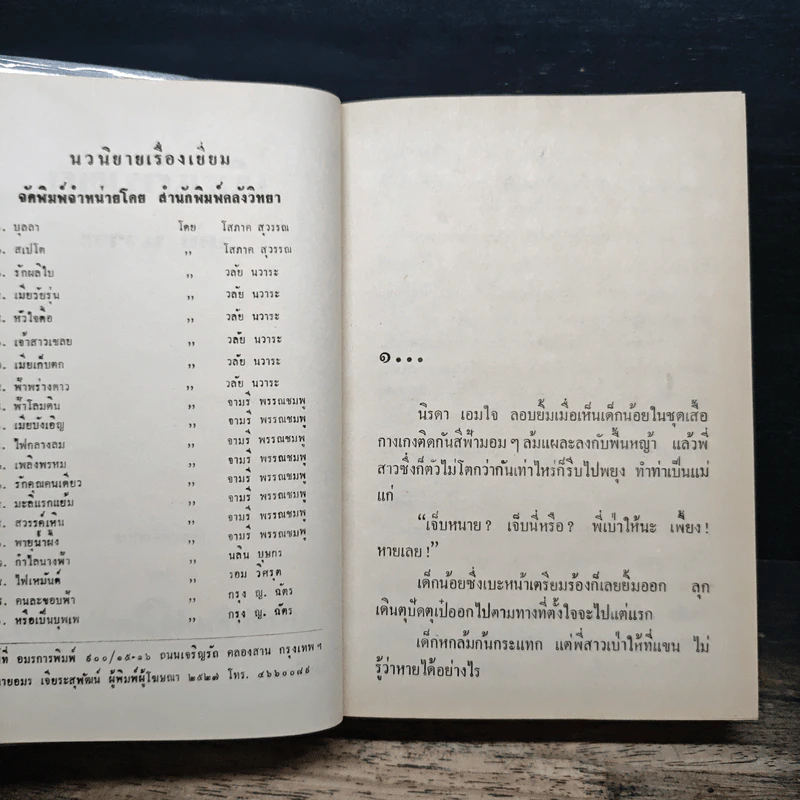 นวนิยายเรื่องเยี่ยม
จัดพิมพ์จำหน่ายโดย สำนักพิมพ์คลังวิทยา
บุลลา โดย โสภาค สุวรรณ
สเปโต ,, โสภาค สุวรรณ
รักผลิใบ ,, วลัย นวาระ
เมียวัยรุ่น ,, วลัย นวาระ
หัวใจดื้อ ,, วลัย นวาระ
เจ้าสาวเชลย ,, วลัย นวาระ
เมียเก็บตก ,, วลัย นวาระ
ฟ้าพร่างดาว ,, วลัย นวาระ
ฟ้าโลมดิน ,, จามรี พรรณชมพู
เมียบังเอิญ ,, จามรี พรรณชมพู
ไฟกลางลม ,, จามรี พรรณชมพู
เพลิงพรหม ,, จามรี พรรณชมพู
รักคุณคนเดียว ,, จามรี พรรณชมพู
มะลิแรกแย้ม ,, จามรี พรรณชมพู
สวรรค์เหิน ,, จามรี พรรณชมพู
พายุน้ำผึ้ง ,, จามรี พรรณชมพู
กำไลนางฟ้า ,, นลิน บุษกร
ไฟเหมันต์ ,, รอม วิศรุต
คนละขอบฟ้า ,, กรุง ญ. ฉัตร
หรือเป็นบุพเพ ,, กรุง ญ. ฉัตร
ที่ อมรการพิมพ์ ๙๐๐/๑๕-๑๖ ถนนเจริญรัถ คลองสาน กรุงเทพ ฯ
นายอมร เจียระสุพัฒน์ ผู้พิมพ์ผู้โฆษณา ๒๕๒๗ โทร. ๔๖๖๐๐๘๙
๑...
นิรดา เอมใจ ลอบยิ้มเมื่อเห็นเด็กน้อยในชุดเสื้อ
กางเกงติดกันสีฟ้ามอม ๆ ล้มแผละลงกับพื้นหญ้า แล้วพี่
สาวซึ่งก็ตัวไม่โตกว่ากันเท่าไหร่ก็รีบไปพยุง ทำท่าเป็นแม่
แก่
“เจ็บหนาย? เจ็บนี่หรือ? พี่เป่าให้นะ เพี้ยง!
หายเลย!”
เด็กน้อยซึ่งเบะหน้าเตรียมร้องก็เลยยิ้มออก ลุก
เดินตุปัดตุเป๋ออกไปตามทางที่ตั้งใจจะไปแต่แรก
เด็กหกล้มก้นกระแทก แต่พี่สาวเป่าให้ที่แขน ไม่
รู้ว่าหายได้อย่างไร